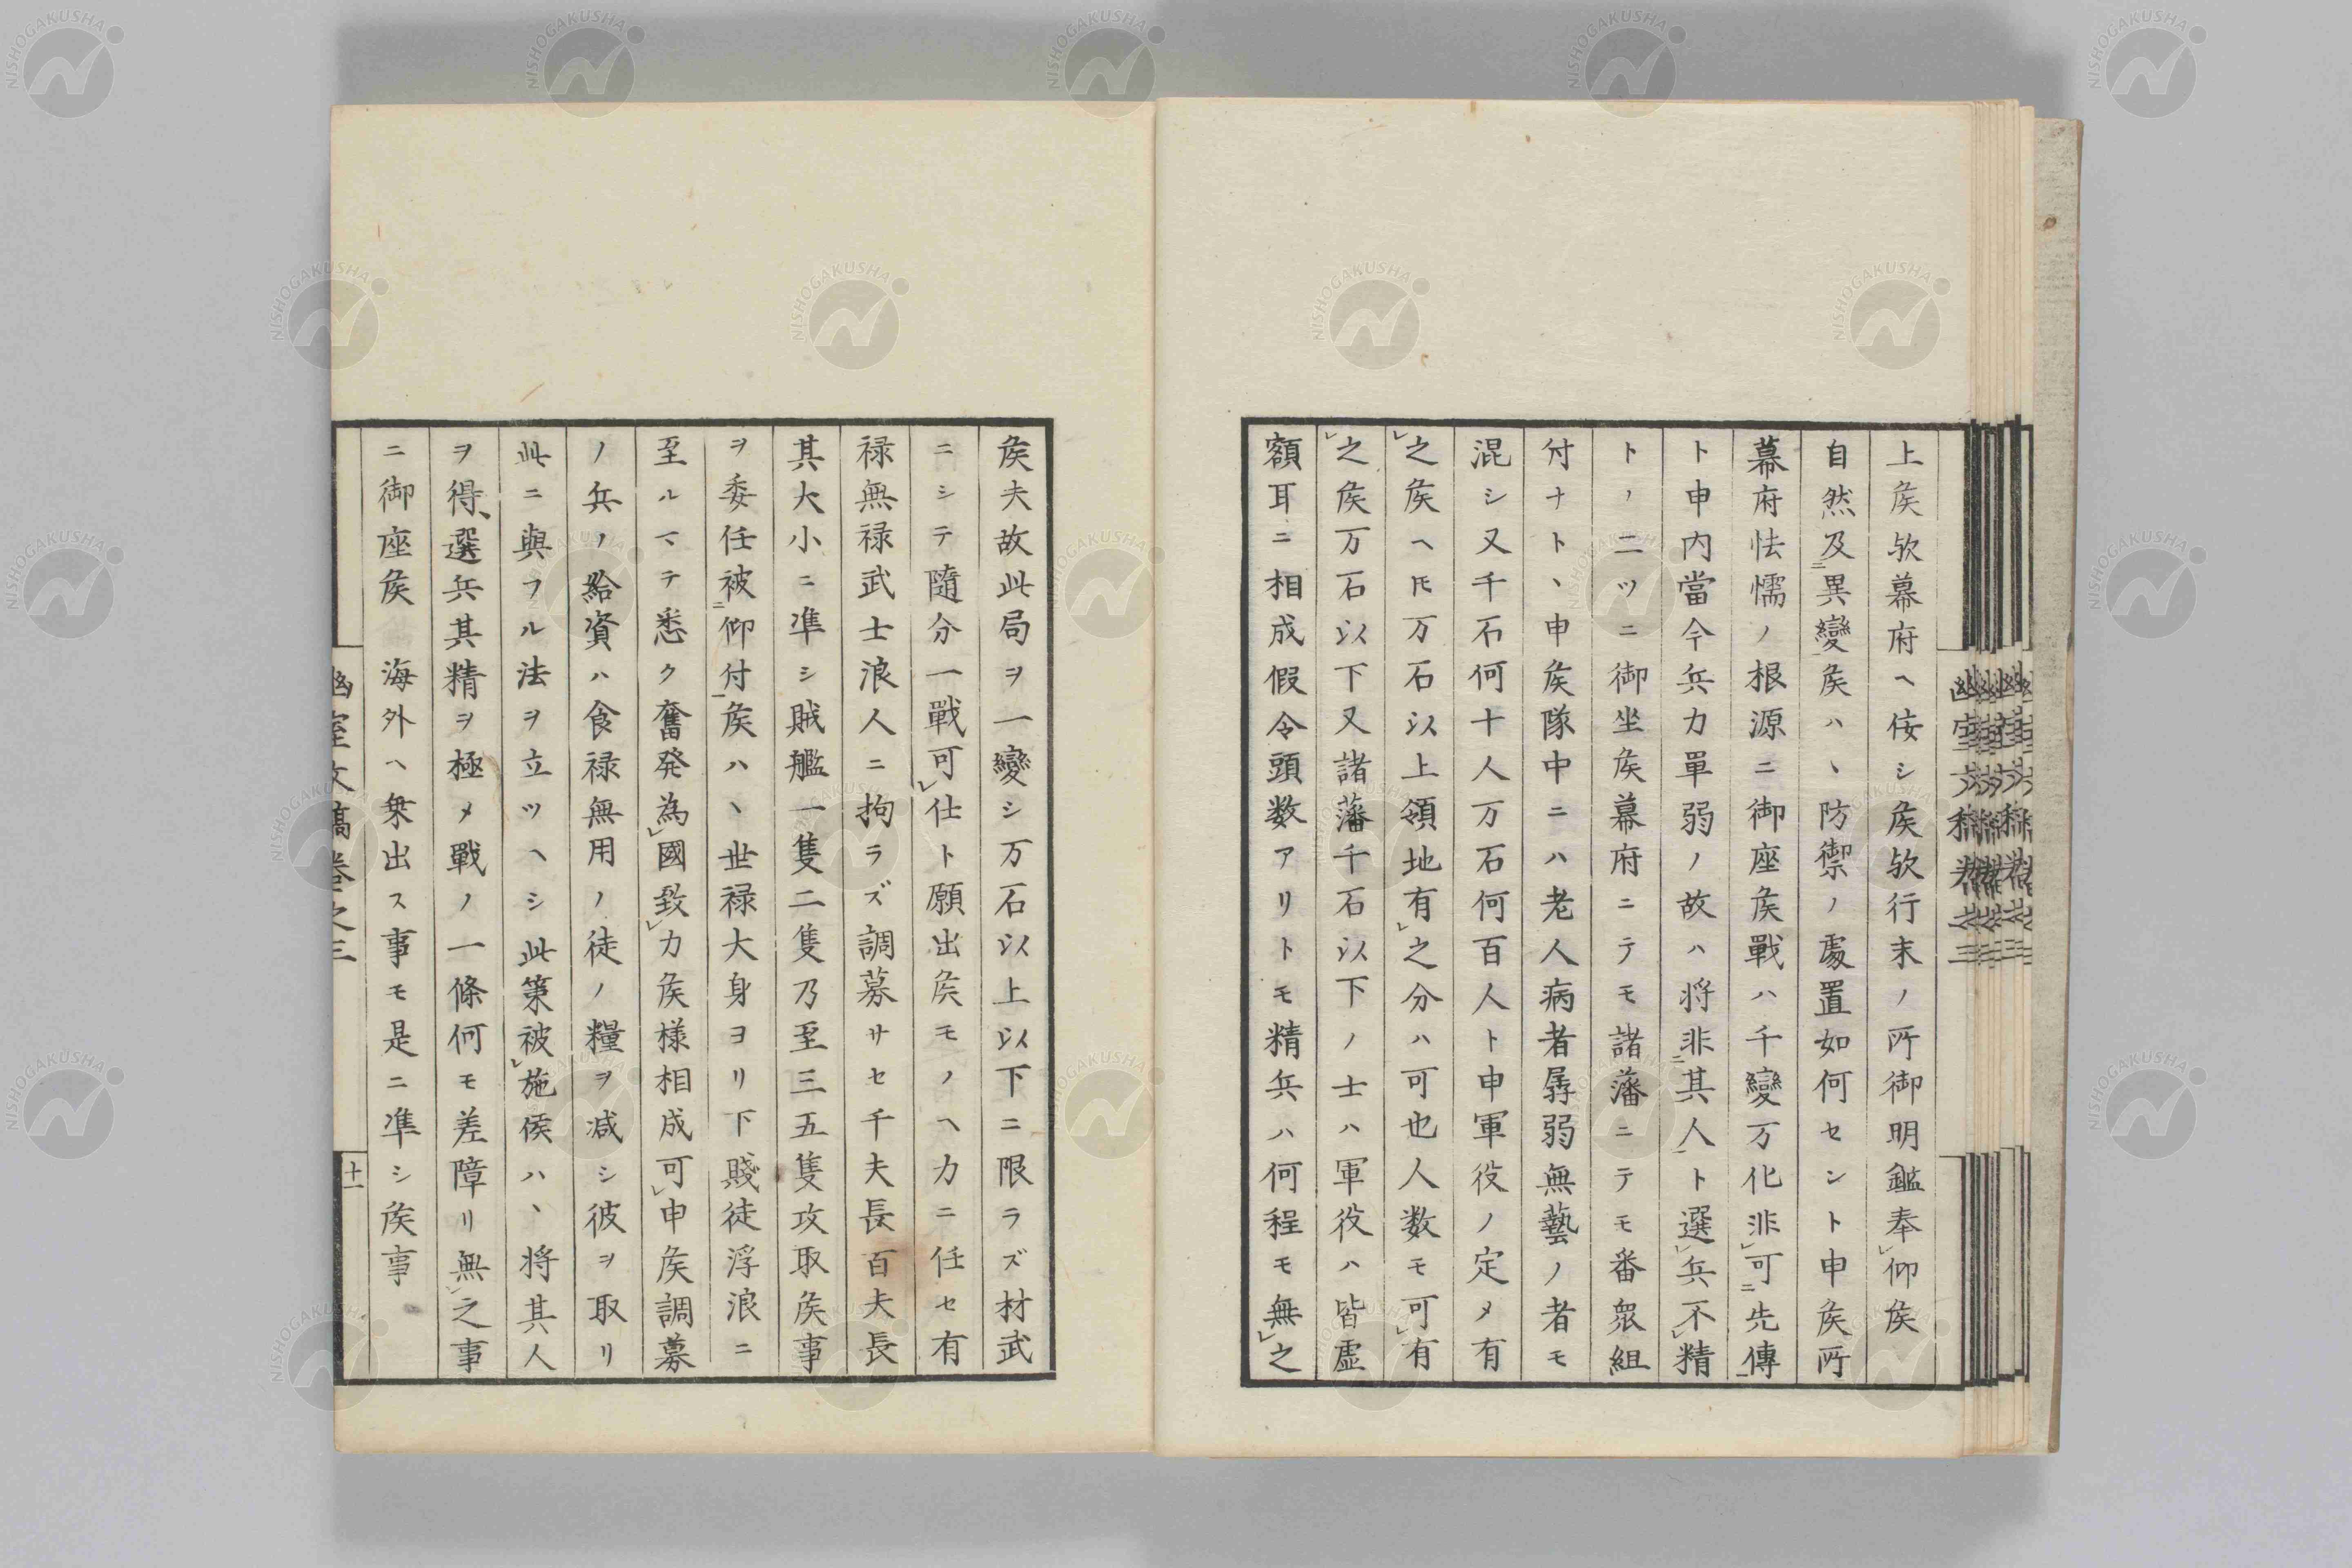 上矦欤幕府ヘ侫シ矦欤行末ノ所御明鑑奉レ仰矦
自然及二異變一矦ハヽ防禦ノ處置如何セシト申矦所
幕府怯懦ノ根源ニ御座矦戰ハ千變万化非レ可二先傳一
ト申内當今兵力單弱ノ故ハ将非二其人一ト選レ兵不レ精
トノ二ツニ御坐矦幕府ニテモ諸藩ニテモ番衆組
付ナトヽ申矦隊中ニハ老人病者孱弱無藝ノ者モ
混シ又千石何十人万石何百人ト申軍役ノ定メ有
レ之矦ヘ𪜈万石以上領地有レ之分ハ可也人数モ可レ有
レ之矦万石以下又諸藩千石以下ノ士ハ軍役ハ皆虚
額耳ニ相成假令頭数アリトモ精兵ハ何程モ無レ之
矦夫故此局ヲ一變シ万石以上以下ニ限ラズ材武
ニシテ隨分一戰可レ仕ト願出矦モノヘ力ニ任セ有
禄無禄武士浪人ニ拘ラズ調募サセ千夫長百夫長
其大小ニ準シ賊艦一隻二隻乃至三五隻攻取矦事
ヲ委任被二仰付一矦ハヽ世禄大身ヨリ下賤徒浮浪ニ
至ルマテ悉ク奮発為レ國致レ力矦様相成可レ申矦調募
ノ兵ノ給資ハ食禄無用ノ徒ノ糧ヲ減シ彼ヲ取リ
此ニ與フル法ヲ立ツヘシ此策被レ施矦ハヽ将其人
ヲ得、選兵其精ヲ極メ戰ノ一條何モ差障リ無レ之事
ニ御座矦　海外ヘ乗出ス事モ是ニ準シ矦事
幽室文稿巻之三
十一